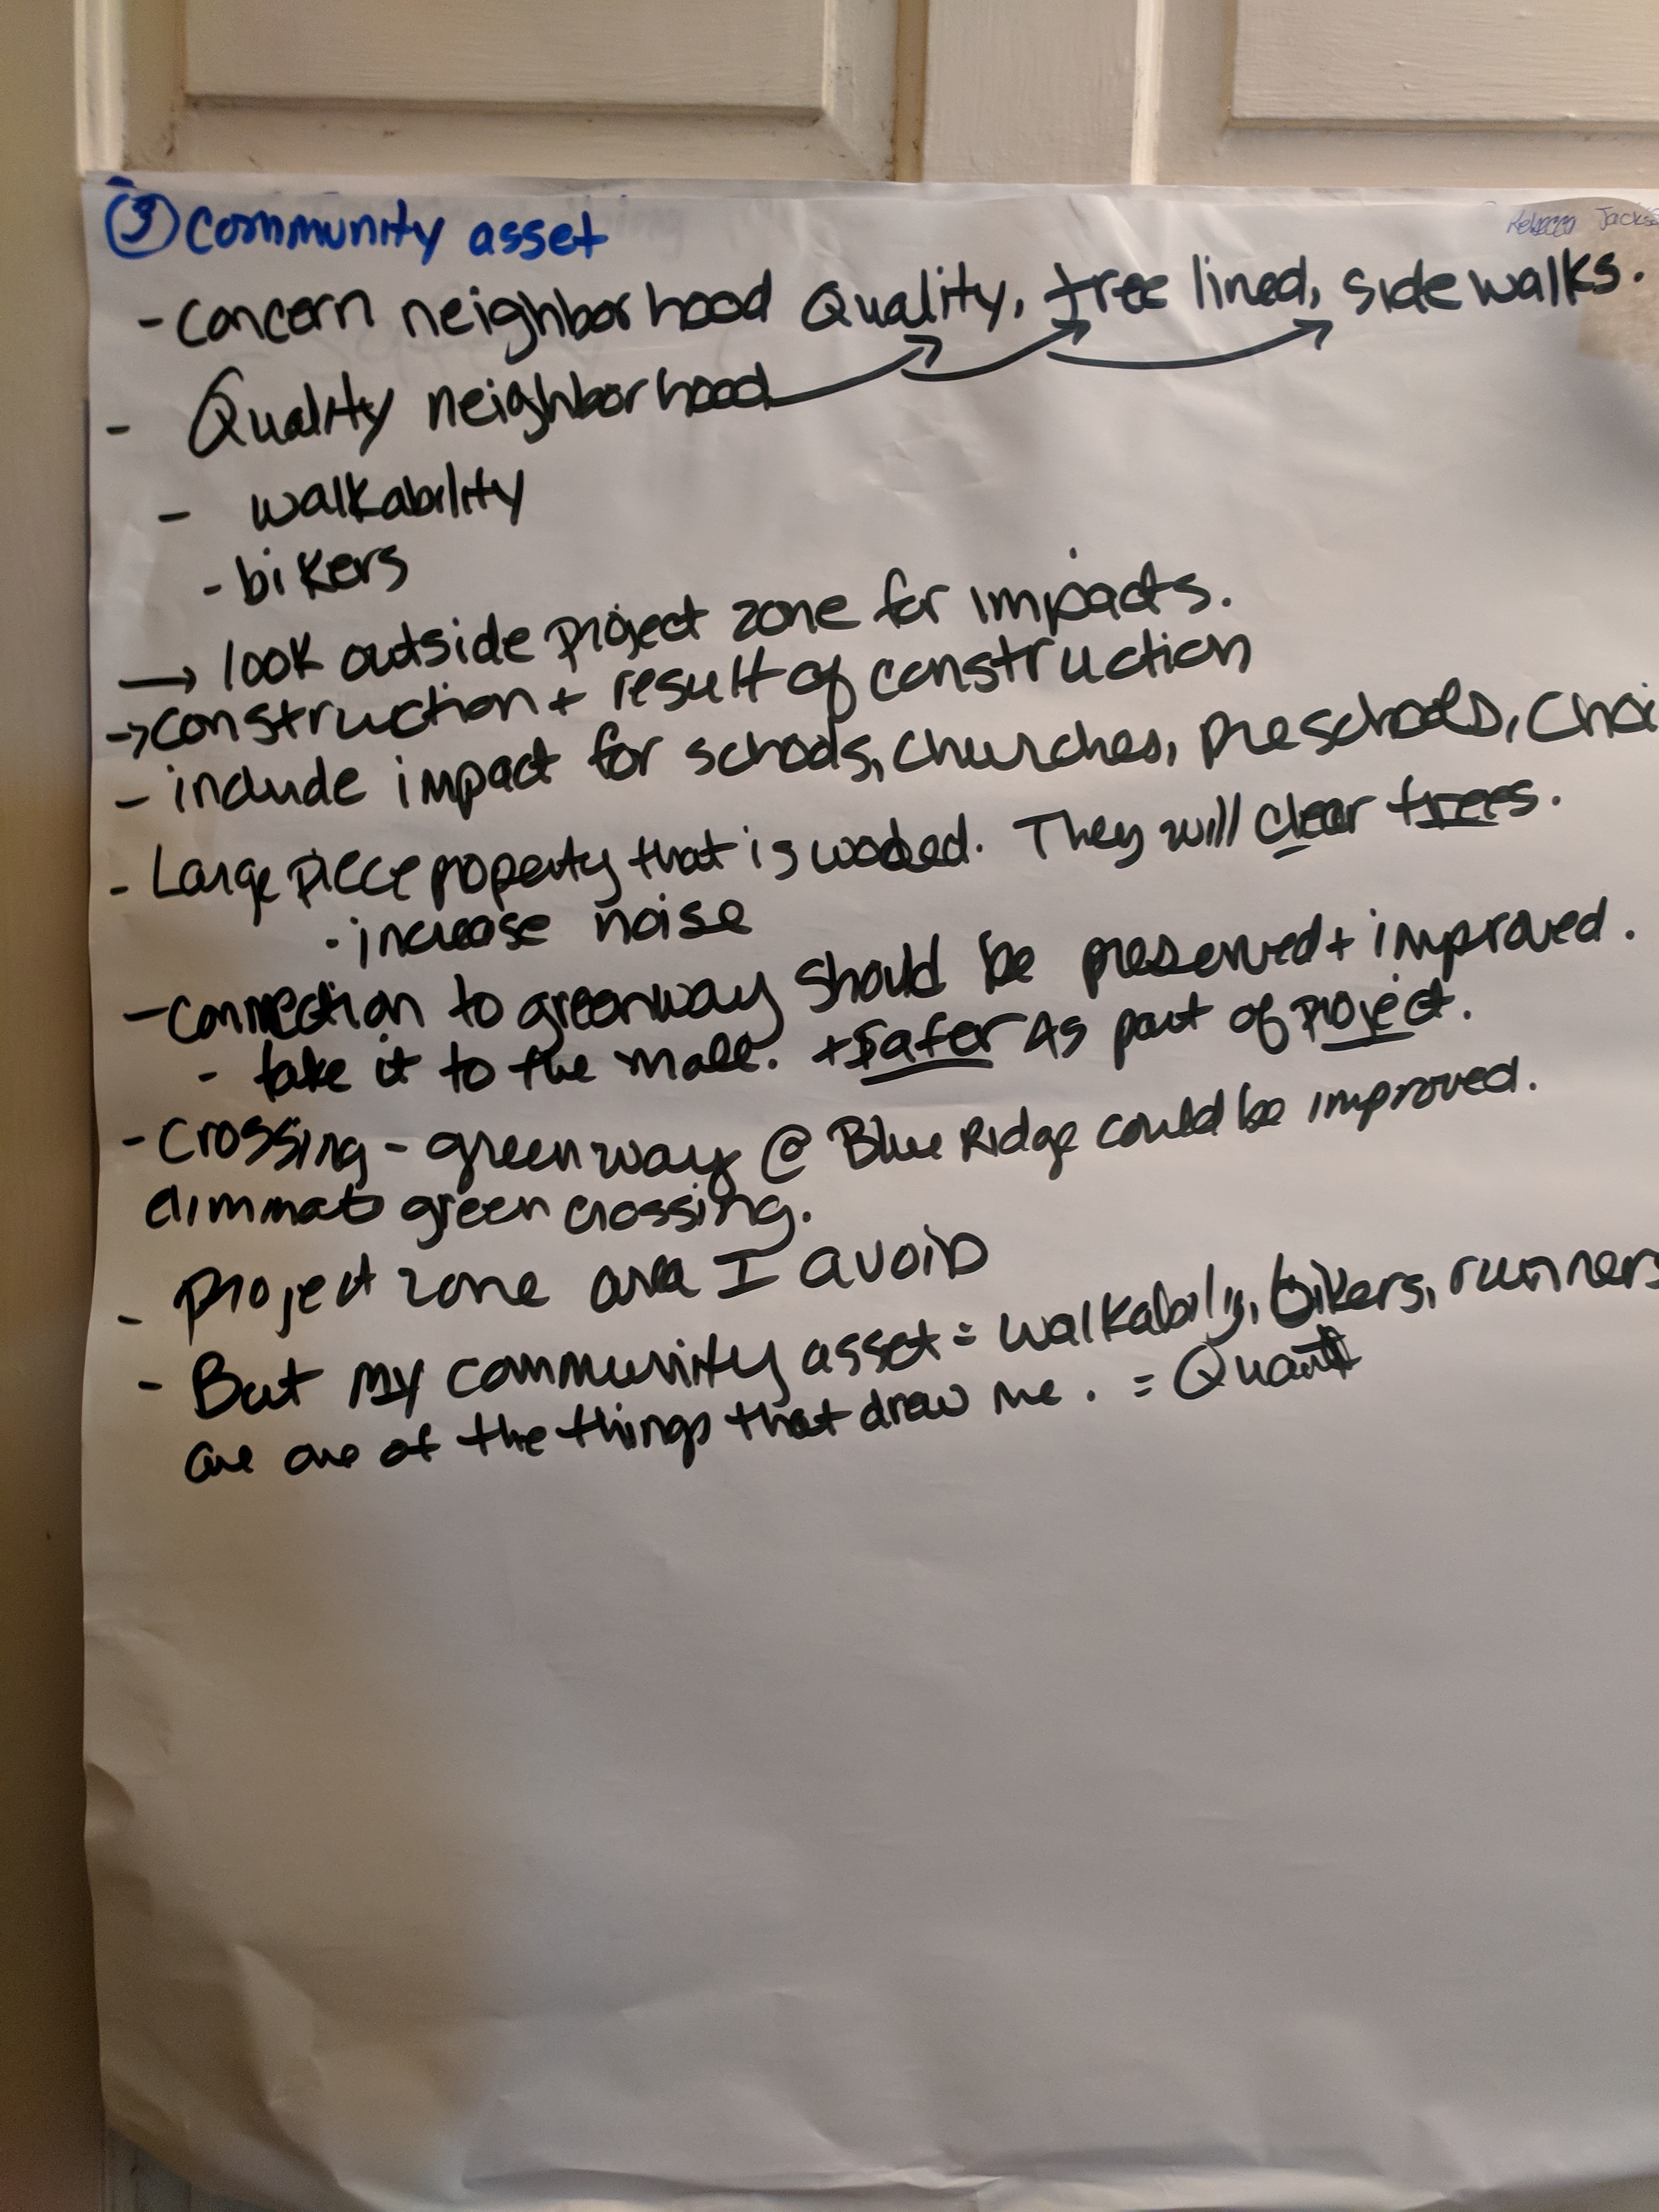 ③ Community asset
Rebecca Jacks
- Concern neighborhood Quality, tree lined, sidewalks.
- Quality neighborhood
- walkability
- bikers
→ look outside project zone for impacts.
→ construction + result of construction
- include impact for schools, churches, preschools, Choi
- Large piece property that is wooded. They will clear trees.
• increase noise
- Connection to greenway should be preserved + improved.
- take it to the mall. + safer As part of project.
- Crossing - greenway @ Blue Ridge could be improved.
eliminate green crossing.
- Project zone area I avoid
- But my community asset = walkability, bikers, runners
are one of the things that draw me. =